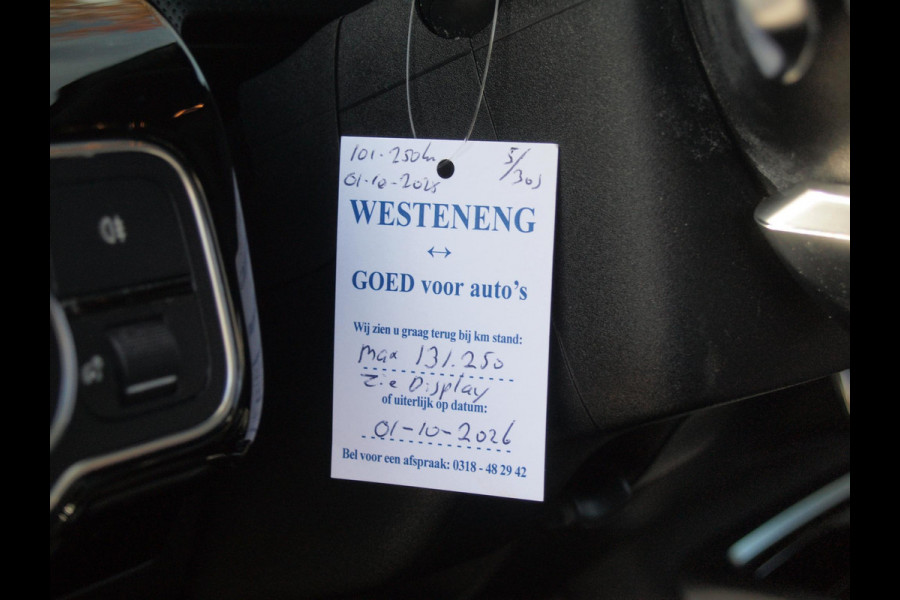 101-250km 5/30J
01-10-2025
WESTENENG
↔
GOED voor auto's
Wij zien u graag terug bij km stand:
max 131.250
Zie Display
of uiterlijk op datum:
01-10-2026
Bel voor een afspraak: 0318 - 48 29 42